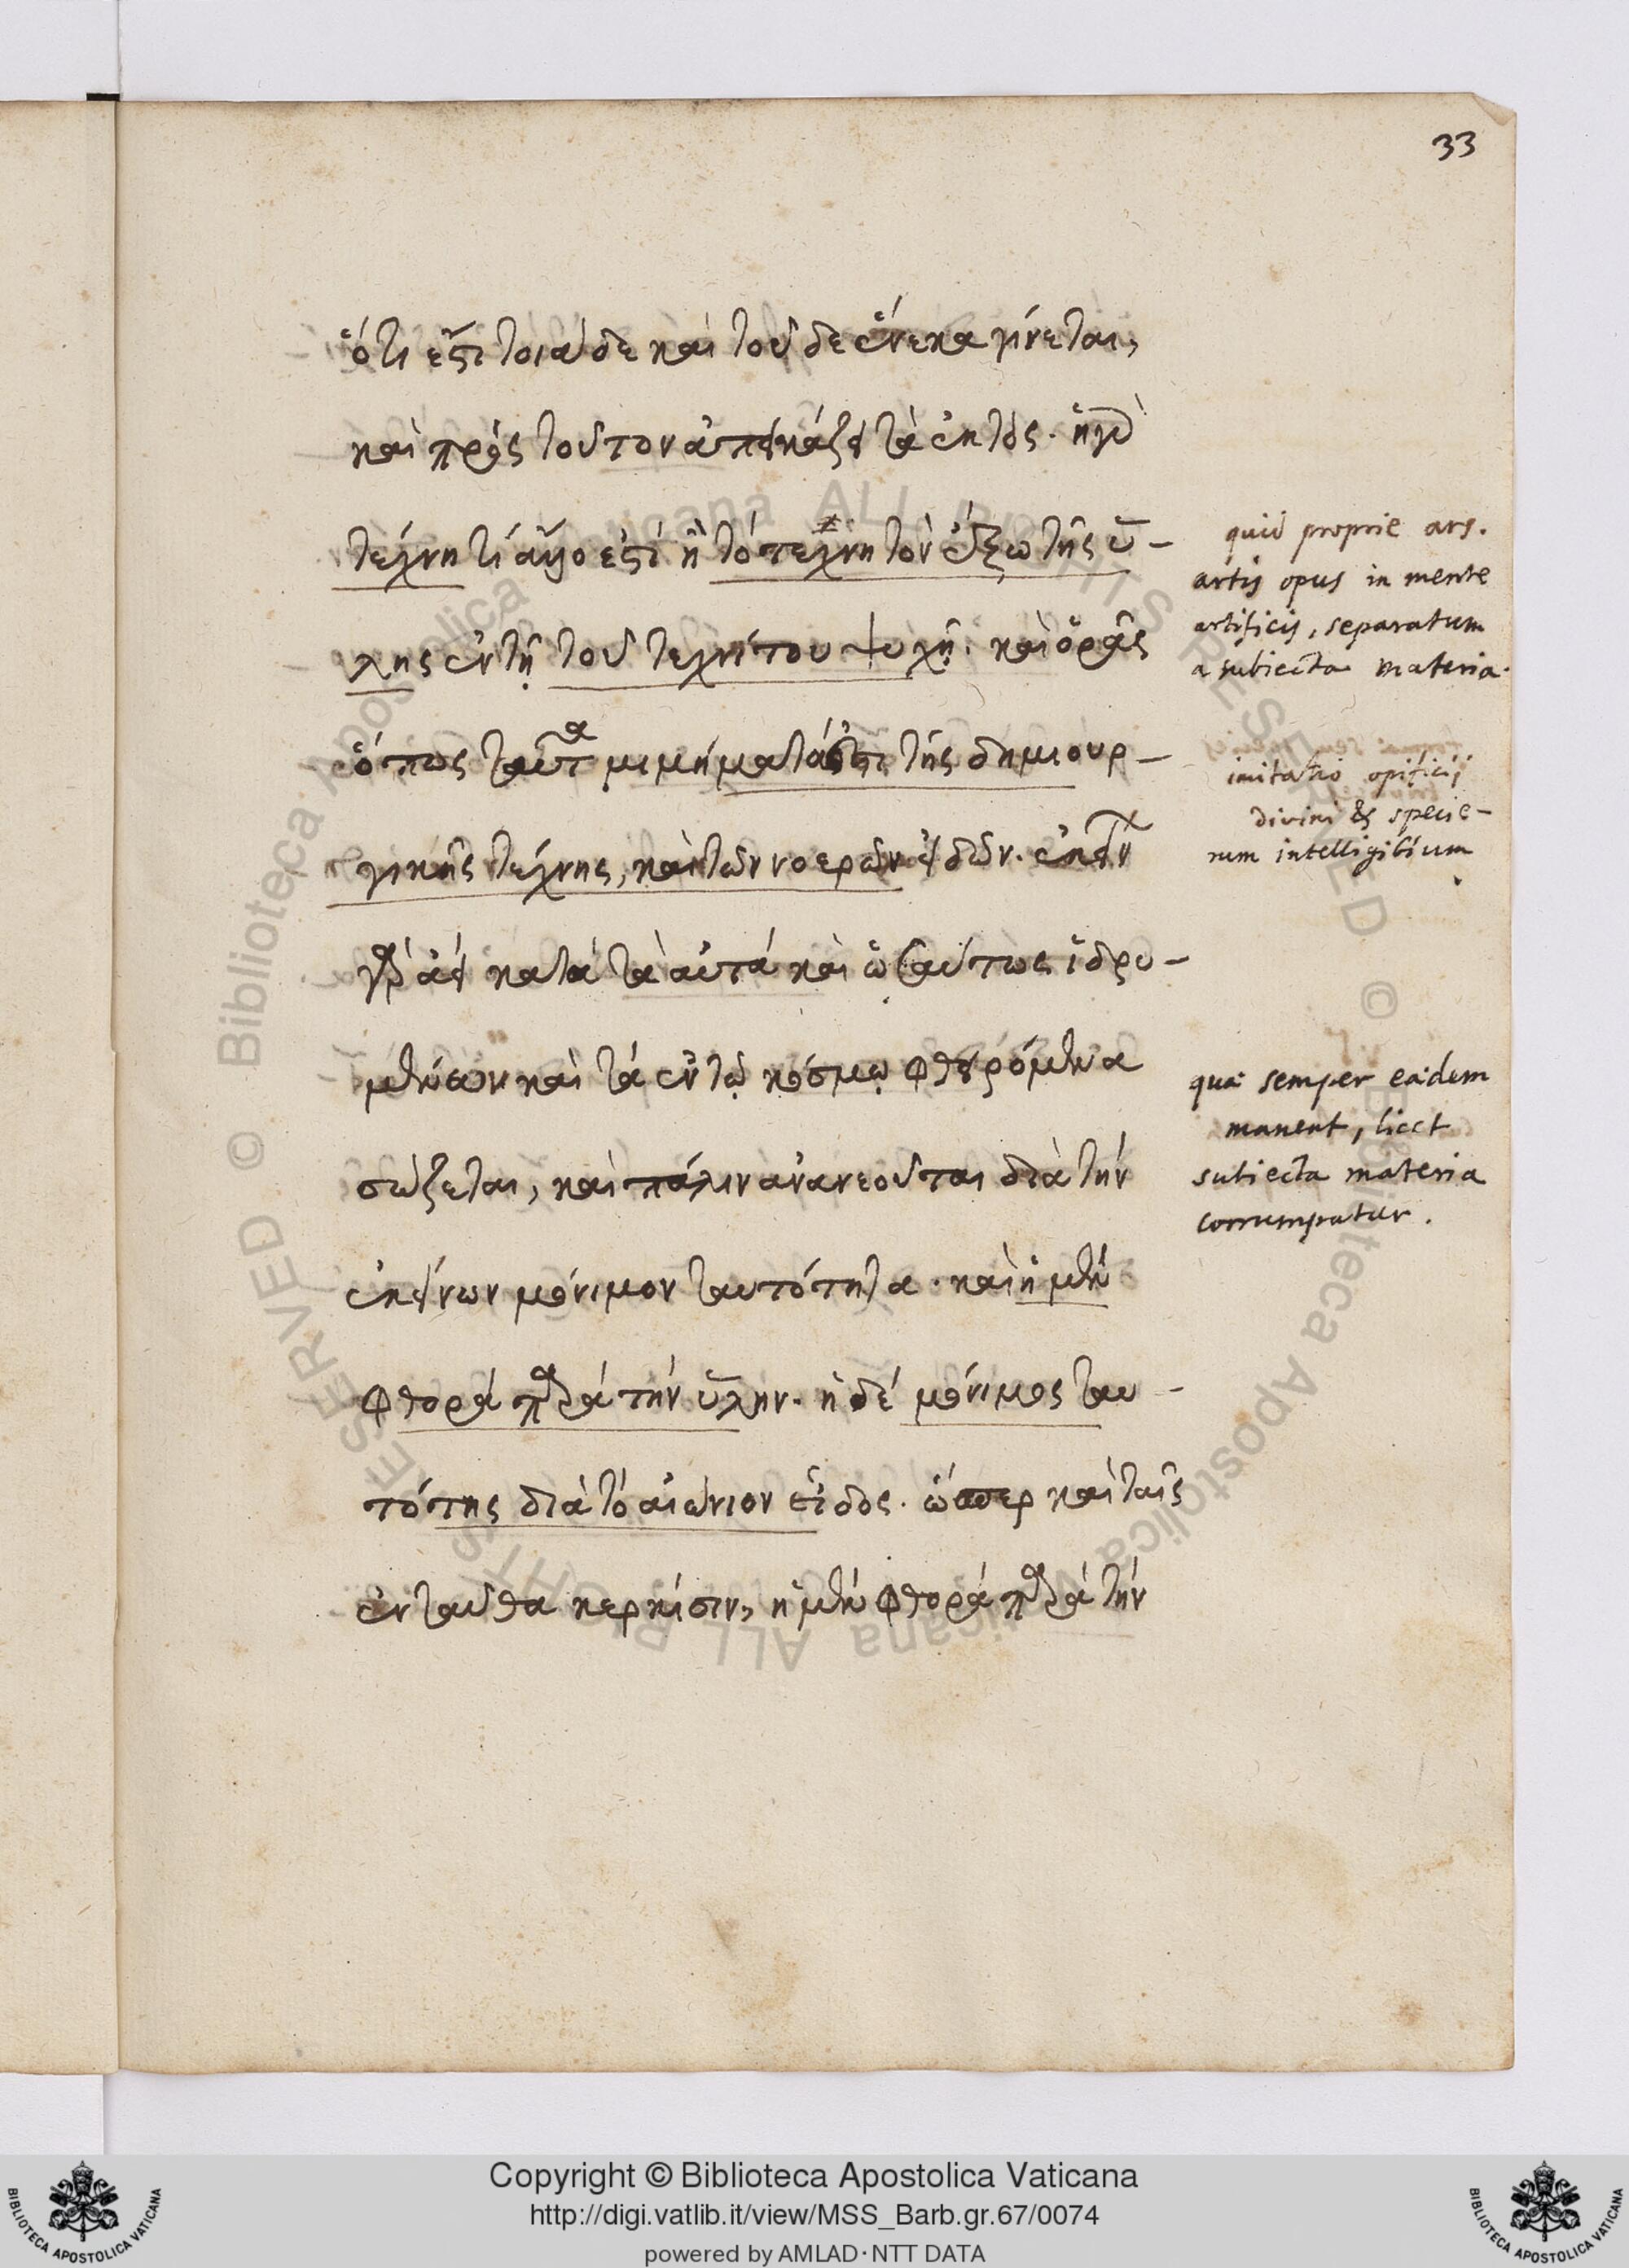 33
ὅτι ἐστὶ τοιάδε καὶ τοῦδε ἕνεκα γίνεται,
καὶ πρὸς τοῦτον ἀπεικάζει τὰ ἐκτός. ἡ γὰρ
τέχνη τί ἄλλο ἐστὶ ἢ τὸ τεχνητὸν ἔξω τῆς ὕ-
λης ἐν τῇ τοῦ τεχνίτου ψυχῇ. καὶ ὁρᾷς
ὅπως ταῦτα μιμήματά ἐστι τῆς δημιουρ-
γικῆς τέχνης, καὶ τῶν νοερῶν εἰδῶν. ἐκείνων
γὰρ ἀεὶ κατὰ τὰ αὐτὰ καὶ ὡσαύτως ἱδρυ-
μένων καὶ τὰ ἐν τῷ κόσμῳ φθειρόμενα
σώζεται, καὶ πάλιν ἀνανεοῦται διὰ τὴν
ἐκείνων μόνιμον ταυτότητα. καὶ ἡ μὲν
φθορὰ παρὰ τὴν ὕλην. ἡ δὲ μόνιμος ταυ-
τότης διὰ τὸ αἰώνιον εἶδος. ὥσπερ καὶ ταῖς
ἐνταῦθα κερκίσιν, ἡ μὲν φθορὰ παρὰ τὴν
quid proprie ars.
artis opus in mente
artificis, separatum
a subiecta materia.
imitatio opificij
divini & specie-
rum intelligibium
quae semper eadem
manent, licet
subiecta materia
corrumpatur.
© Biblioteca Apostolica Vaticana ALL RIGHTS RESERVED © Biblioteca Apostolica Vaticana ALL RIGHTS RESERVED
Copyright © Biblioteca Apostolica Vaticana
http://digi.vatlib.it/view/MSS_Barb.gr.67/0074
powered by AMLAD·NTT DATA
BIBLIOTECA APOSTOLICA VATICANA
BIBLIOTECA APOSTOLICA VATICANA